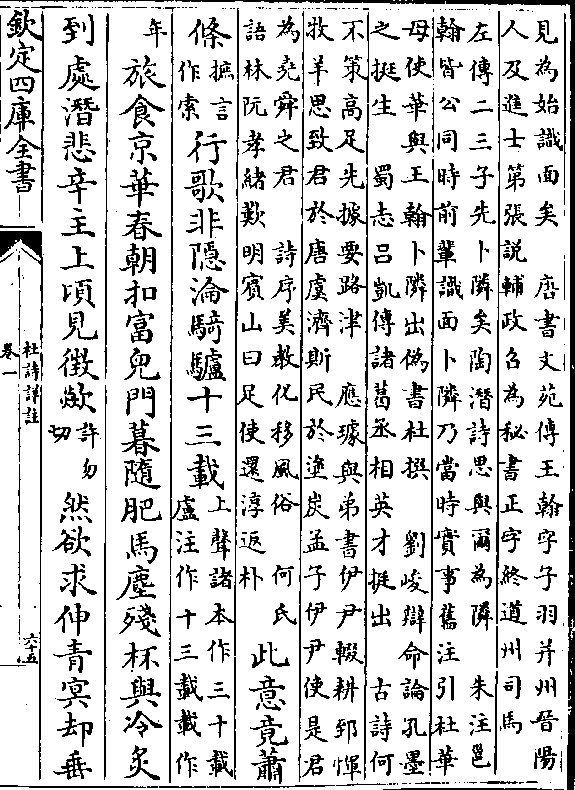 見為始識面矣　唐書文苑傳王翰字子羽并州晉陽
人及進士第張說輔政召為秘書正字終道州司馬
左傳二三子先卜隣矣陶潛詩思與爾為隣　朱注邕
翰皆公同時前輩識面卜隣乃當時實事舊注引杜華
母使華與王翰卜隣出偽書杜撰　劉峻辯命論孔墨
之挺生　蜀志呂凱傳諸葛丞相英才挺出　古詩何
不策高足先據要路津　應璩與弟書伊尹輟耕郅惲
牧羊思致君於唐虞濟斯民於塗炭孟子伊尹使是君
為堯舜之君　詩序美敎化移風俗　何氏
語林阮孝緒歎明賓山曰足使還淳返朴
此意竟蕭
條
摭言
作索
行歌非隱淪騎驢十三載
上聲諸本作三十載
盧注作十三載載作
年
旅食京華春朝扣富兒門暮隨肥馬塵殘杯與冷炙
到處潛悲辛主上頃見徵歘
許勿
切
然欲求伸青冥却垂
欽定四庫全書
杜詩詳註
卷一
六十五